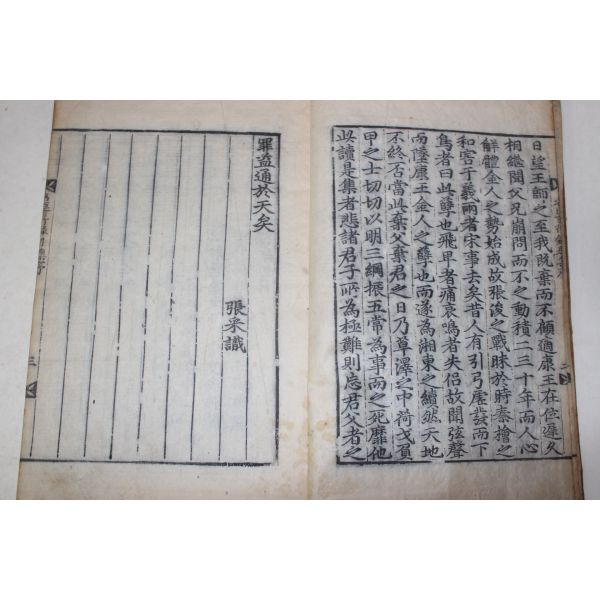 日望王師之至我既棄而不顧適康王在位遲久
相繼聞父兄崩問而不之動積二三十年而人心
解體金人之勢始成故張浚之戰昧於時秦檜之
和害于義兩者宋事去矣昔人有引弓虛發而下
鳥者曰此孽也飛卑者痛哀鳴者失侶故聞弦聲
而墮康王金人之孽也而遂為湘東之續然天地
不終否當此棄父棄君之日乃草澤之中荷戈頂
甲之士切切以明三綱振五常為事而之死靡他
此讀是集者悲諸君子所為極難則忘君父者之
罪益通於天矣
張采識
二
三